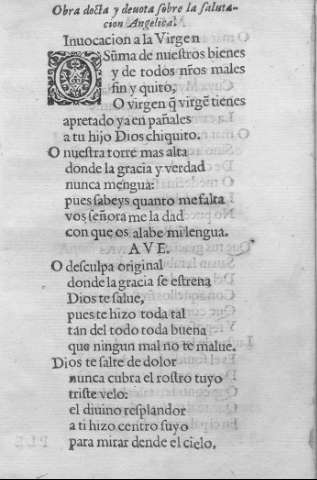 Obra docta y deuota sobre la saluta-
cion Angelica.
Inuocacion a la Virgen
O Sũma de nuestros bienes
y de todos nr̃os males
fin y quito,
O virgen q̃ virgẽ tienes
apretado ya en pañales
a tu hijo Dios chiquito.
O nuestra torre mas alta
donde la gracia y verdad
nunca mengua:
pues sabeys quanto me falta
vos señora me la dad
con que os alabe mi lengua.
AVE.
O desculpa original
donde la gracia se estrena
Dios te salue,
pues te hizo toda tal
tan del todo toda buena
que ningun mal no te malue.
Dios te salte de dolor
nunca cubra el rostro tuyo
triste velo:
el diuino resplandor
a ti hizo centro suyo
para mirar dende el cielo.